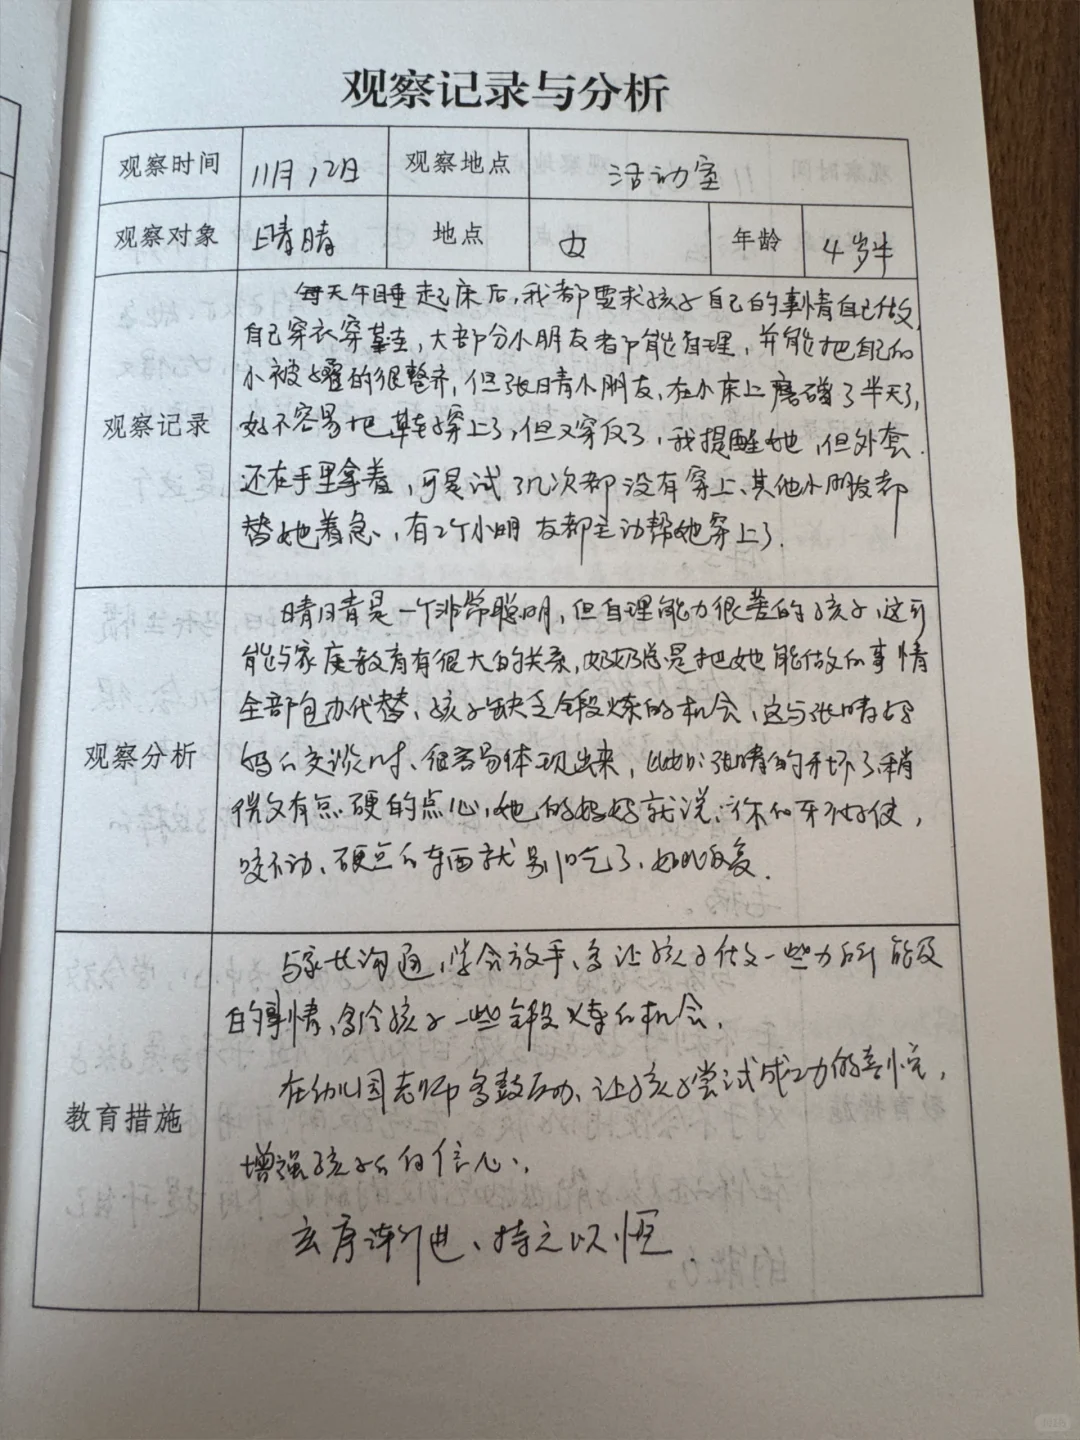 观察记录与分析
观察时间 11月12日 观察地点 活动室
观察对象 晴晴 地点 女 年龄 4岁半
每天午睡起床后,我都要求孩子自己的事情自己做,
自己穿衣穿鞋,大部分小朋友都能自理,并能把自己的
小被叠的很整齐,但张晴小朋友,在小床上磨蹭了半天了,
观察记录
好不容易把鞋穿上了,但又穿反了,我提醒她,但外套
还在手里拿着,可是试了几次都没有穿上、其他小朋友都
替她着急、有2个小朋友都主动帮她穿上了.
晴晴是一个非常聪明,但自理能力很差的孩子、这可
能与家庭教育有很大的关系,奶奶总是把她能做的事情
全部包办代替、孩子缺乏锻炼的机会、这与张晴妈
观察分析
妈的交谈时、很容易体现出来,比如:张晴的牙坏了稍
微又有点硬的点心,她的妈妈就说:你的牙不好使,
咬不动、硬点的东西就别吃了、如此反复.
与家长沟通,学会放手、多让孩子做一些力所能及
的事情、多给孩子一些锻炼的机会、
教育措施
在幼儿园老师多鼓励、让孩子尝试成功的喜悦,
增强孩子的自信心、
循序渐进、持之以恒